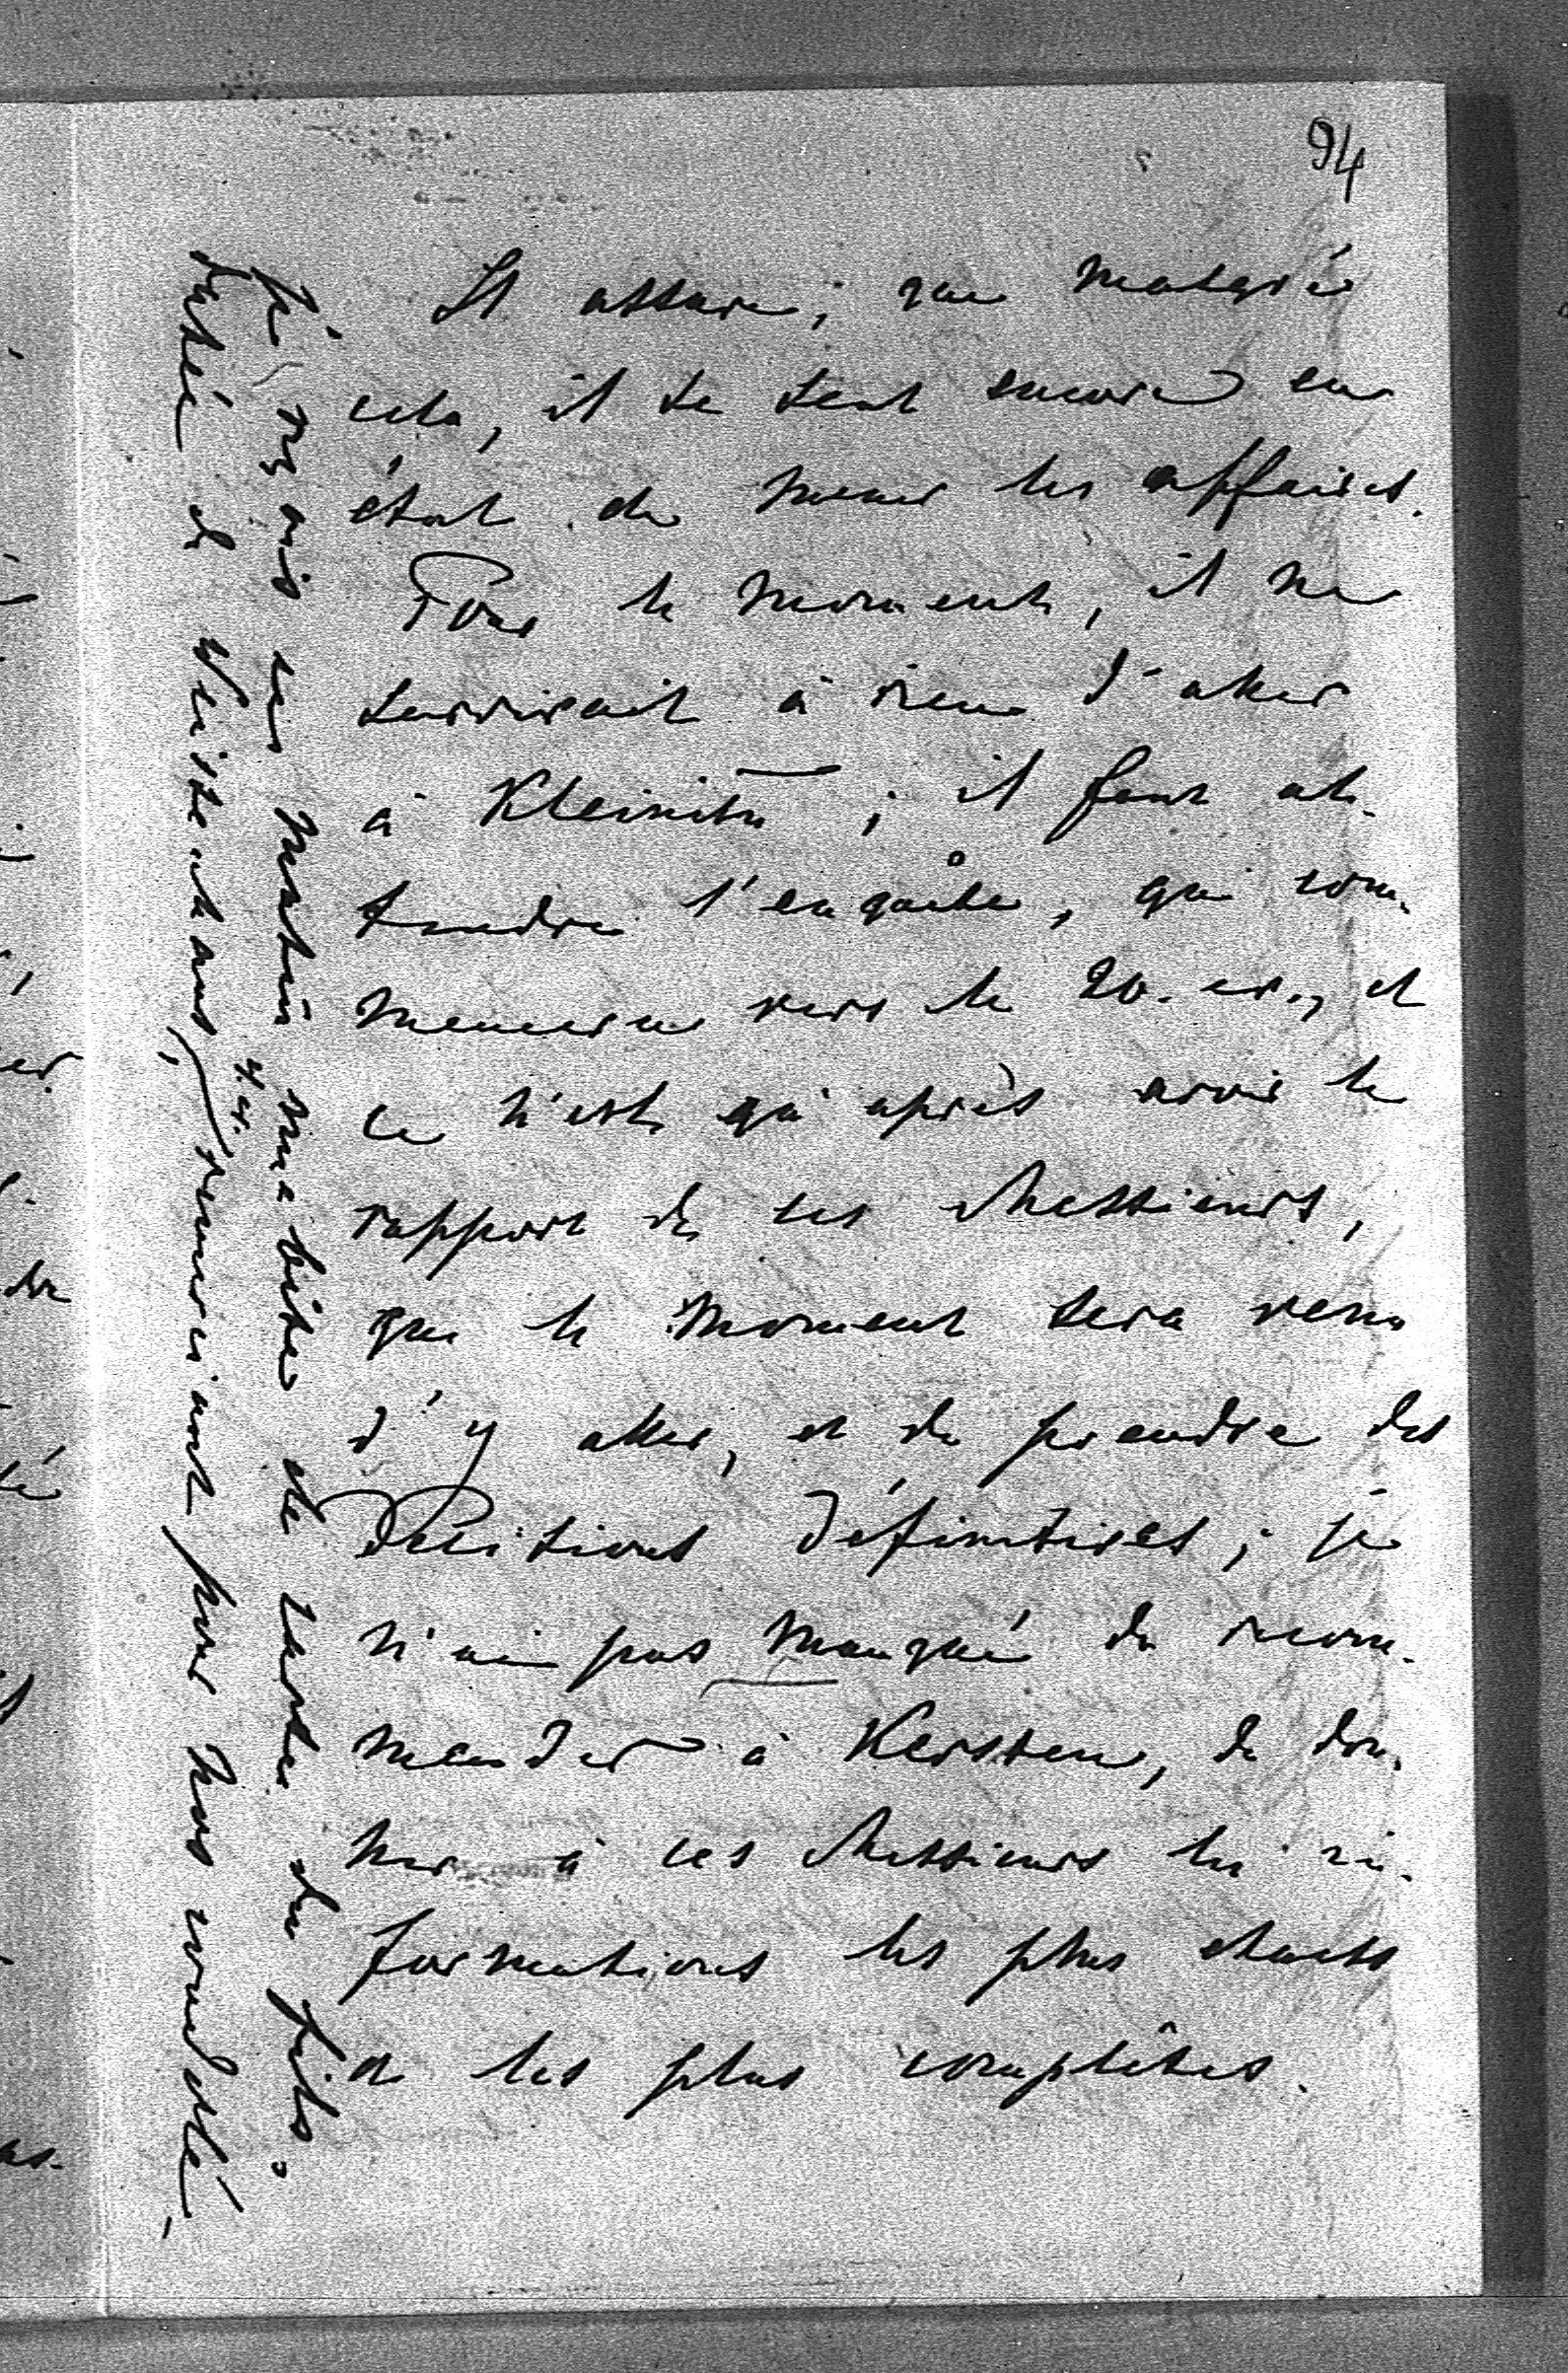 94
Il assure, que malgré
cela, il se sent encore en
état de mener les affaires.
Pour le moment, il ne
servirait à rien d'aller
à Kleinitz ; il faut at-
tendre l'enquête, qui com-
mencera vers le 20. cr., et
ce n'est qu'après avoir le
rapport de ces Messieurs,
que le moment sera venu
d'y aller, et de prendre des
Décisions définitives ; je
n'ai pas manqué de recom-
mander à Kersten, de don-
ner à ces Messieurs les in-
formations les plus exactes
et les plus complètes.
J'ai reçu ce matin une lettre de
datée de